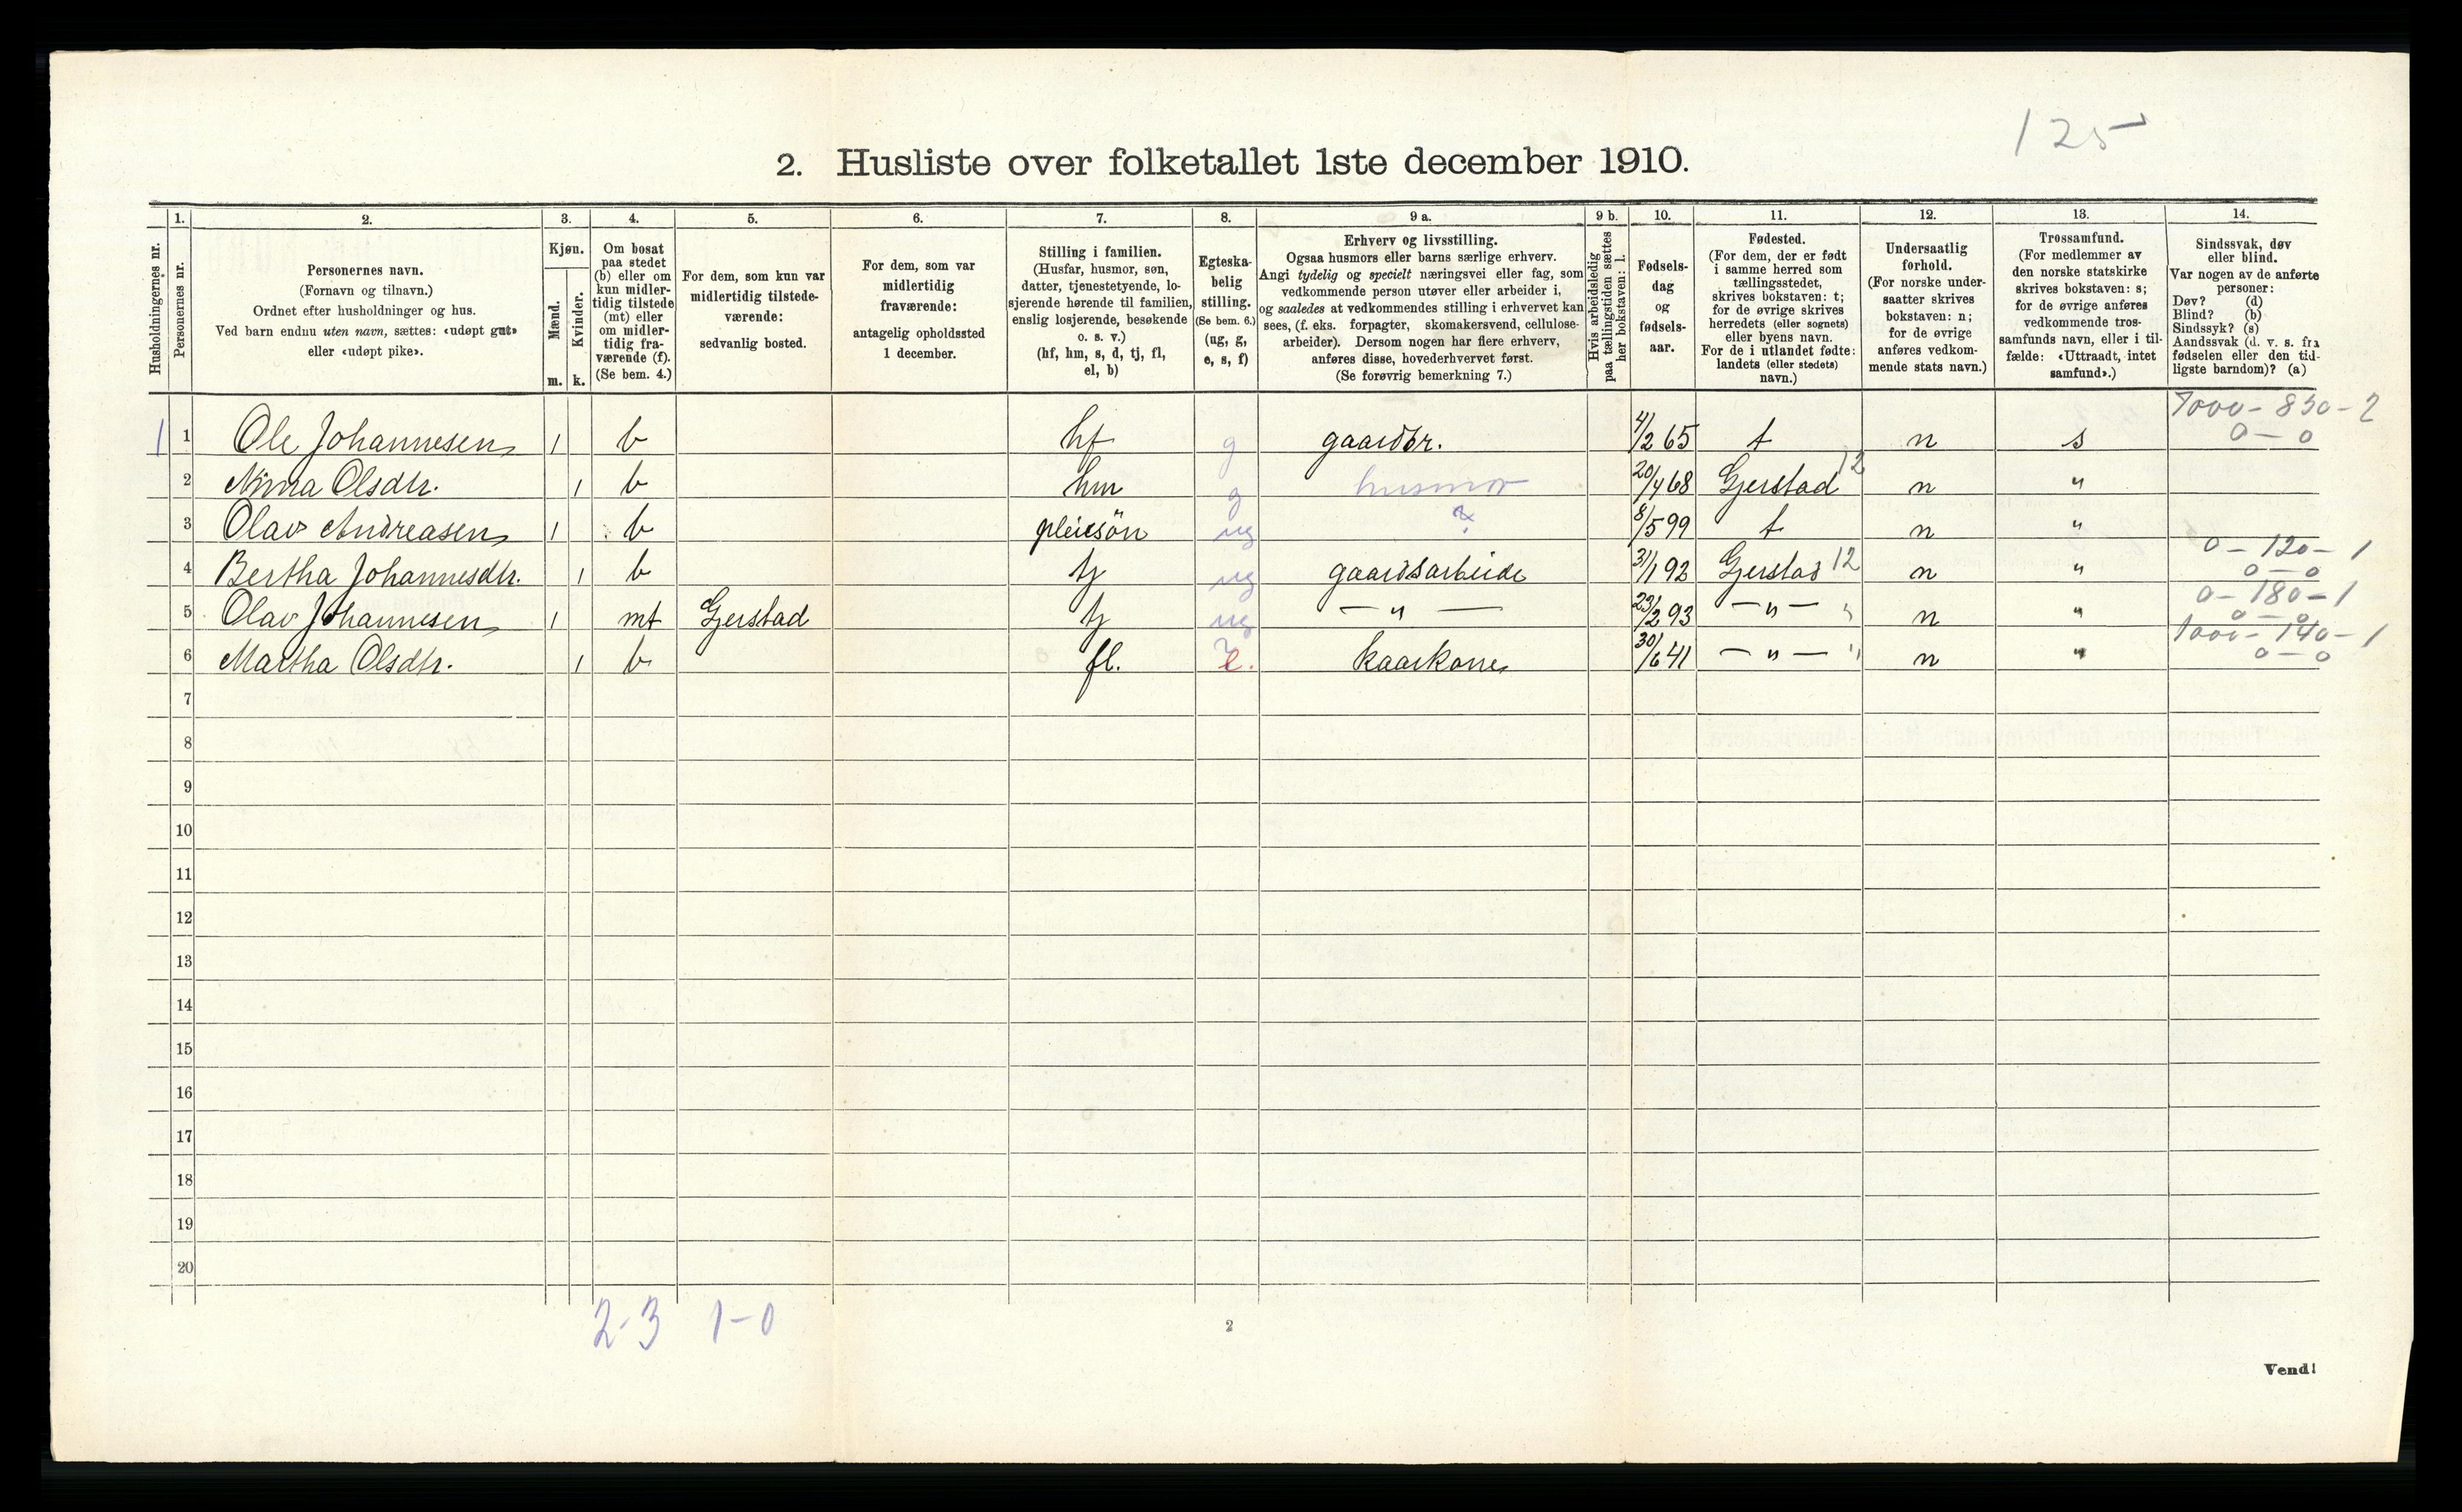 125
2. Husliste over folketallet 1ste december 1910.
Husholdningernes nr.
1.
Personernes nr.
2.
Personernes navn.
(Fornavn og tilnavn.)
Ordnet efter husholdninger og hus.
Ved barn endnu uten navn, sættes: «udøpt gut»
eller «udøpt pike».
3.
Kjøn.
Mænd.
Kvinder.
m. k.
4.
Om bosat
paa stedet
(b) eller om
kun midler-
tidig tilstede
(mt) eller
om midler-
tidig fra-
værende (f).
(Se bem. 4.)
5.
For dem, som kun var
midlertidig tilstede-
værende:
sedvanlig bosted.
6.
For dem, som var
midlertidig
fraværende:
antagelig opholdssted
1 december.
7.
Stilling i familien.
(Husfar, husmor, søn,
datter, tjenestetyende, lo-
sjerende hørende til familien,
enslig losjerende, besøkende
o. s. v.)
(hf, hm, s, d, tj, fl,
el, b)
8.
Egteska-
belig
stilling.
(Se bem. 6.)
(ug, g,
e, s, f)
9 a.
Erhverv og livsstilling.
Ogsaa husmors eller barns særlige erhverv.
Angi tydelig og specielt næringsvei eller fag, som
vedkommende person utøver eller arbeider i,
og saaledes at vedkommendes stilling i erhvervet kan
sees, (f. eks. forpagter, skomakersvend, cellulose-
arbeider). Dersom nogen har flere erhverv,
anføres disse, hovederhvervet først.
(Se forøvrig bemerkning 7.)
9 b.
Hvis arbeidsledig
paa tællingstiden sættes
her bokstaven: l.
10.
Fødsels-
dag
og
fødsels-
aar.
11.
Fødested.
(For dem, der er født
i samme herred som
tællingsstedet,
skrives bokstaven: t;
for de øvrige skrives
herredets (eller sognets)
eller byens navn.
For de i utlandet fødte:
landets (eller stedets)
navn.)
12.
Undersaatlig
forhold.
(For norske under-
saatter skrives
bokstaven: n;
for de øvrige
anføres vedkom-
mende stats navn.)
13.
Trossamfund.
(For medlemmer av
den norske statskirke
skrives bokstaven: s;
for de øvrige anføres
vedkommende tros-
samfunds navn, eller i til-
fælde: «Uttraadt, intet
samfund».)
14.
Sindssvak, døv
eller blind.
Var nogen av de anførte
personer:
Døv? (d)
Blind? (b)
Sindssyk? (s)
Aandssvak (d. v. s. fra
fødselen eller den tid-
ligste barndom)? (a)
7000 - 850 - 2
1 1 Ole Johannesen 1 b hf g gaardbr. 4/2 65 t n s 0 - 0
2 Nina Olsdtr. 1 b hm g husmor 20/4 68 Gjerstad 12 n "
3 Olav Andreasen 1 b pleiesön ug ? 8/5 99 t n "
0 - 120 - 1
4 Bertha Johannesdtr. 1 b tj ug gaardsarbeide 31/1 92 Gjerstad 12 n " 0 - 0
0 - 180 - 1
5 Olav Johannesen 1 mt Gjerstad tj ug — " — 23/2 93 — " — " n " 0 - 0
1000 - 140 - 1
6 Martha Olsdtr. 1 b fl. e. kaarkone 30/6 41 — " — " n " 0 - 0
7
8
9
10
11
12
13
14
15
16
17
18
19
20
2-3 1-0
2
Vend!